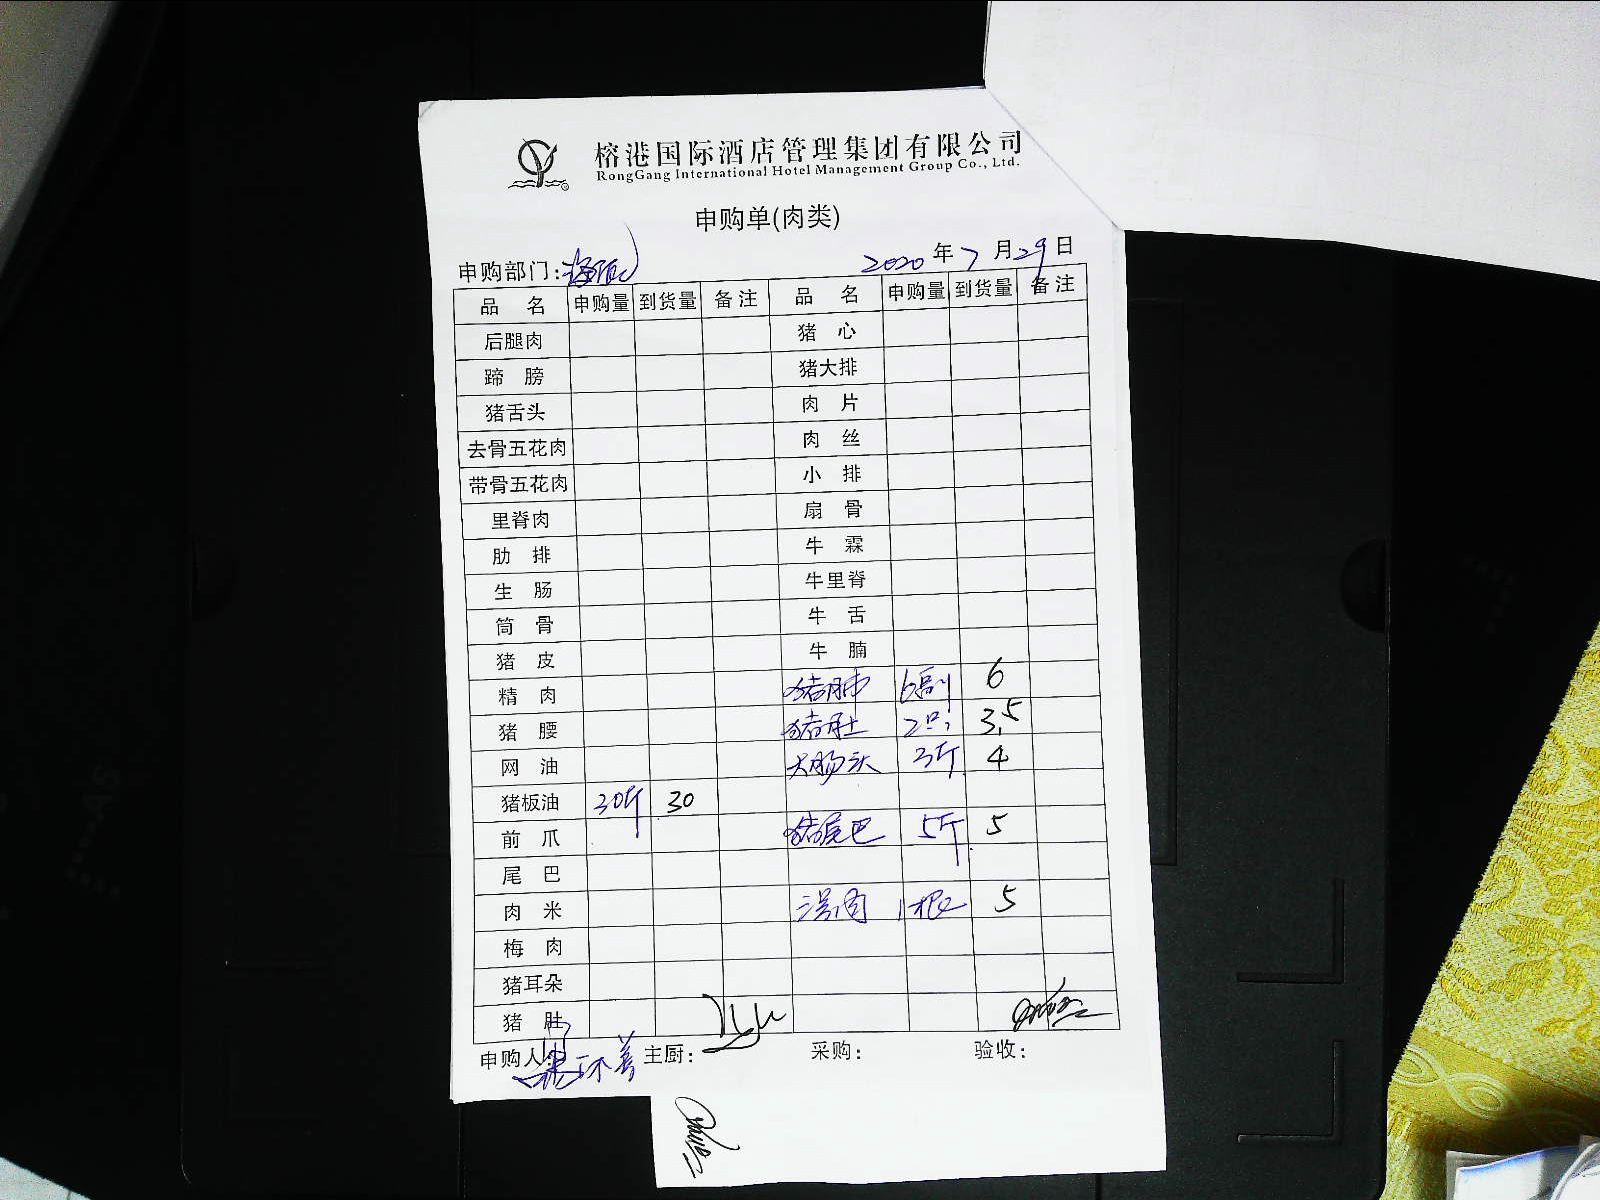 榕港国际酒店管理集团有限公司
RongGang International Hotel Management Group Co., Ltd.
申购单(肉类)
申购部门: 2020年7月29日
品名 申购量 到货量 备注 品名 申购量 到货量 备注
后腿肉 猪心
蹄膀 猪大排
猪舌头 肉片
去骨五花肉 肉丝
带骨五花肉 小排
里脊肉 扇骨
肋排 牛霖
生肠 牛里脊
筒骨 牛舌
猪皮 牛腩
精肉 猪肺 6副 6
猪腰 猪肚 2只 3.5
网油 大肠头 3斤 4
猪板油 30斤 30
前爪 猪尾巴 5斤 5
尾巴
肉米 1根 5
梅肉
猪耳朵
猪肚
申购人: 主厨: 采购: 验收: